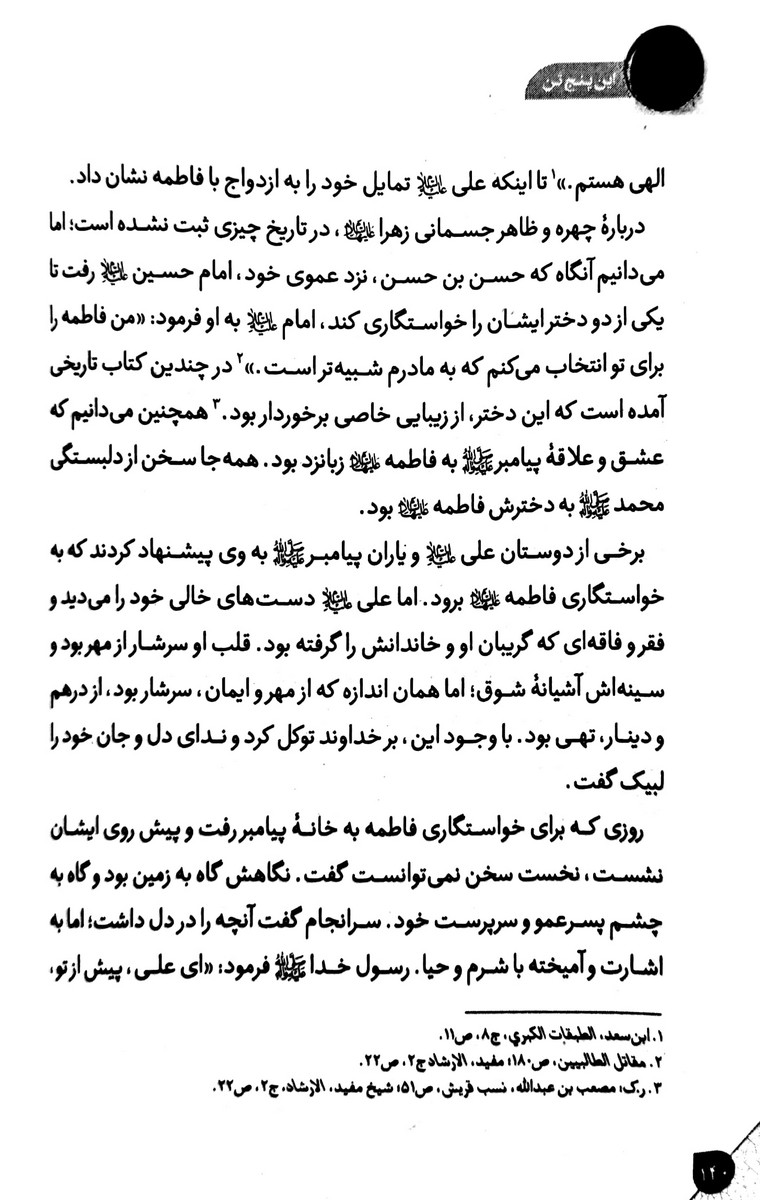 این پنج تن
الهی هستم.»۱ تا اینکه علی علیه‌السلام تمایل خود را به ازدواج با فاطمه نشان داد.
دربارهٔ چهره و ظاهر جسمانی زهرا علیهاالسلام، در تاریخ چیزی ثبت نشده است؛ اما
می‌دانیم آنگاه که حسن بن حسن، نزد عموی خود، امام حسین علیه‌السلام رفت تا
یکی از دو دختر ایشان را خواستگاری کند، امام علیه‌السلام به او فرمود: «من فاطمه را
برای تو انتخاب می‌کنم که به مادرم شبیه‌تر است.»۲ در چندین کتاب تاریخی
آمده است که این دختر، از زیبایی خاصی برخوردار بود.۳ همچنین می‌دانیم که
عشق و علاقهٔ پیامبر ﷺ به فاطمه علیهاالسلام زبانزد بود. همه‌جا سخن از دلبستگی
محمد ﷺ به دخترش فاطمه علیهاالسلام بود.
برخی از دوستان علی علیه‌السلام و یاران پیامبر ﷺ به وی پیشنهاد کردند که به
خواستگاری فاطمه علیهاالسلام برود. اما علی علیه‌السلام دست‌های خالی خود را می‌دید و
فقر و فاقه‌ای که گریبان او و خاندانش را گرفته بود. قلب او سرشار از مهر بود و
سینه‌اش آشیانهٔ شوق؛ اما همان اندازه که از مهر و ایمان، سرشار بود، از درهم
و دینار، تهی بود. با وجود این، بر خداوند توکل کرد و ندای دل و جان خود را
لبیک گفت.
روزی که برای خواستگاری فاطمه به خانهٔ پیامبر رفت و پیش روی ایشان
نشست، نخست سخن نمی‌توانست گفت. نگاهش گاه به زمین بود و گاه به
چشم پسرعمو و سرپرست خود. سرانجام گفت آنچه را در دل داشت؛ اما به
اشارت و آمیخته با شرم و حیا. رسول خدا ﷺ فرمود: «ای علی، پیش از تو،
۱. ابن‌سعد، الطبقات الکبري، ج۸، ص۱۱.
۲. مقاتل الطالبیین، ص۱۸۰؛ مفید، الارشاد ج۲، ص۲۲.
۳. ر.ک: مصعب بن عبدالله، نسب قریش، ص۵۱؛ شیخ مفید، الارشاد، ج۲، ص۲۲.
۱۴۰